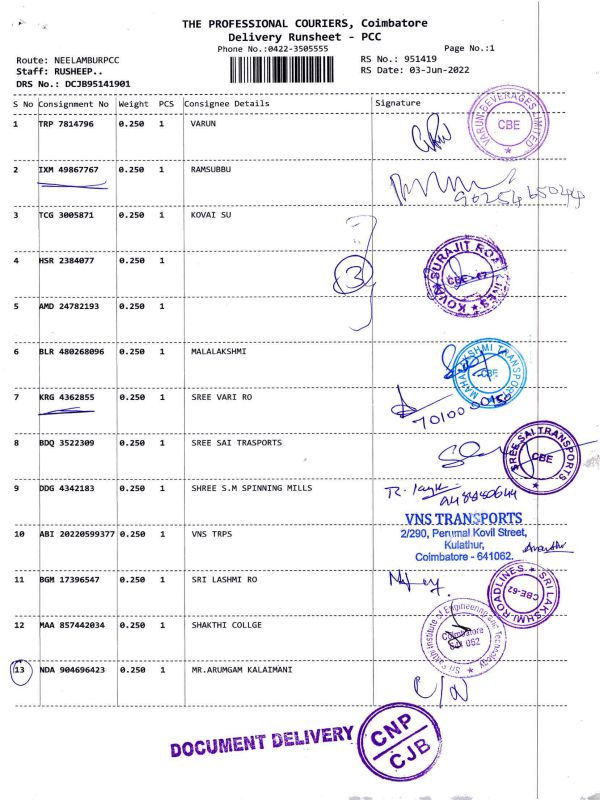 THE PROFESSIONAL COURIERS, Coimbatore
Delivery Runsheet - PCC
Phone No.:0422-3505555
Page No.:1
Route: NEELAMBURPCC
RS No.: 951419
Staff: RUSHEEP..
RS Date: 03-Jun-2022
DRS No.: DCJB95141901
S No Consignment No Weight PCS Consignee Details Signature
1 TRP 7814796 0.250 1 VARUN
VARUN BEVERAGES LIMITED
CBE
2 IXM 49867767 0.250 1 RAMSUBBU
3 TCG 3005871 0.250 1 KOVAI SU
4 HSR 2384077 0.250 1
3
KOVAI SURAJIT ROADLINES
5 AMD 24782193 0.250 1
6 BLR 480268096 0.250 1 MALALAKSHMI
MAHALAKSHMI TRANSPORT
CBE
7 KRG 4362855 0.250 1 SREE VARI RO
8 BDQ 3522309 0.250 1 SREE SAI TRASPORTS
SREE SAI TRANSPORTS
CBE
9 DDG 4342183 0.250 1 SHREE S.M SPINNING MILLS
10 ABI 20220599377 0.250 1 VNS TRPS
VNS TRANSPORTS
2/290, Perumal Kovil Street,
Kulathur,
Coimbatore - 641062.
11 BGM 17396547 0.250 1 SRI LASHMI RO
SRI LAKSHMI ROADLINES
CBE-62
12 MAA 857442034 0.250 1 SHAKTHI COLLGE
Sri Sakthi Institute of Engineering and Technology
Coimbatore
641 062
13 NDA 904696423 0.250 1 MR.ARUMGAM KALAIMANI
DOCUMENT DELIVERY
CNP
CJB